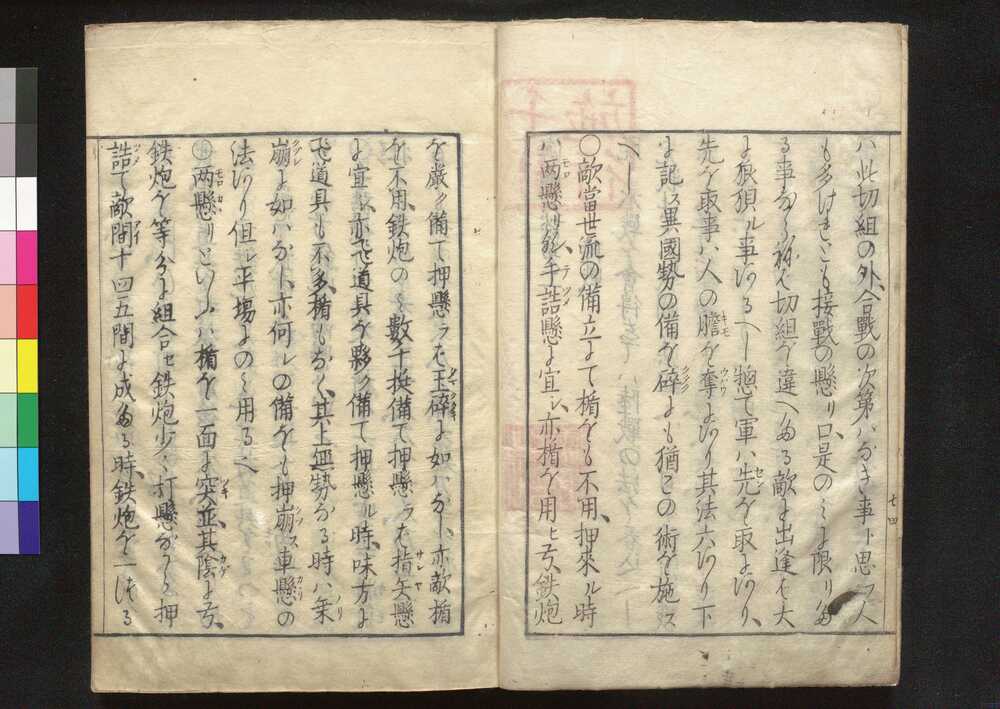 ハ此切組の外、合戰の次第ハなき事ト思フ人
も多けれども接戰の懸リ口、是のミに限りた
る事ならね𪜈切組を違へたる敵に出逢ハ大
に狼狽ル事ある へし惣て軍ハ先を取にあり、
先を取事ハ人の膽を奪にあり其法六あり下
に記ス異國勢の備を碎にも猶この術を施ス
へし
〇敵當世流の備立にて楯をも不用、押來ル時
ハ两懸リ、手詰懸に宜シ、亦楯を用ヒす、鉄炮
を嚴ク備て押懸ラハ玉碎に如ハなし、亦敵楯
を不用、鉄炮のミ數十挺備て押懸ラハ指矢懸
に宜シ、亦飛道具を夥ク備て押懸ル時、味方に
飛道具も不多、楯もなく、其上無勢なる時ハ乗
崩に如ハなし、亦何レの備をも押崩スハ車懸の
法あり但シ平場にのミ用る之
两懸リといふハ楯を一面に突並其陰に弓、
鉄炮を等分に組合セ鉄炮少々打懸ながら押
詰て敵間十四五間に成たる時、鉄炮を一はる
七四